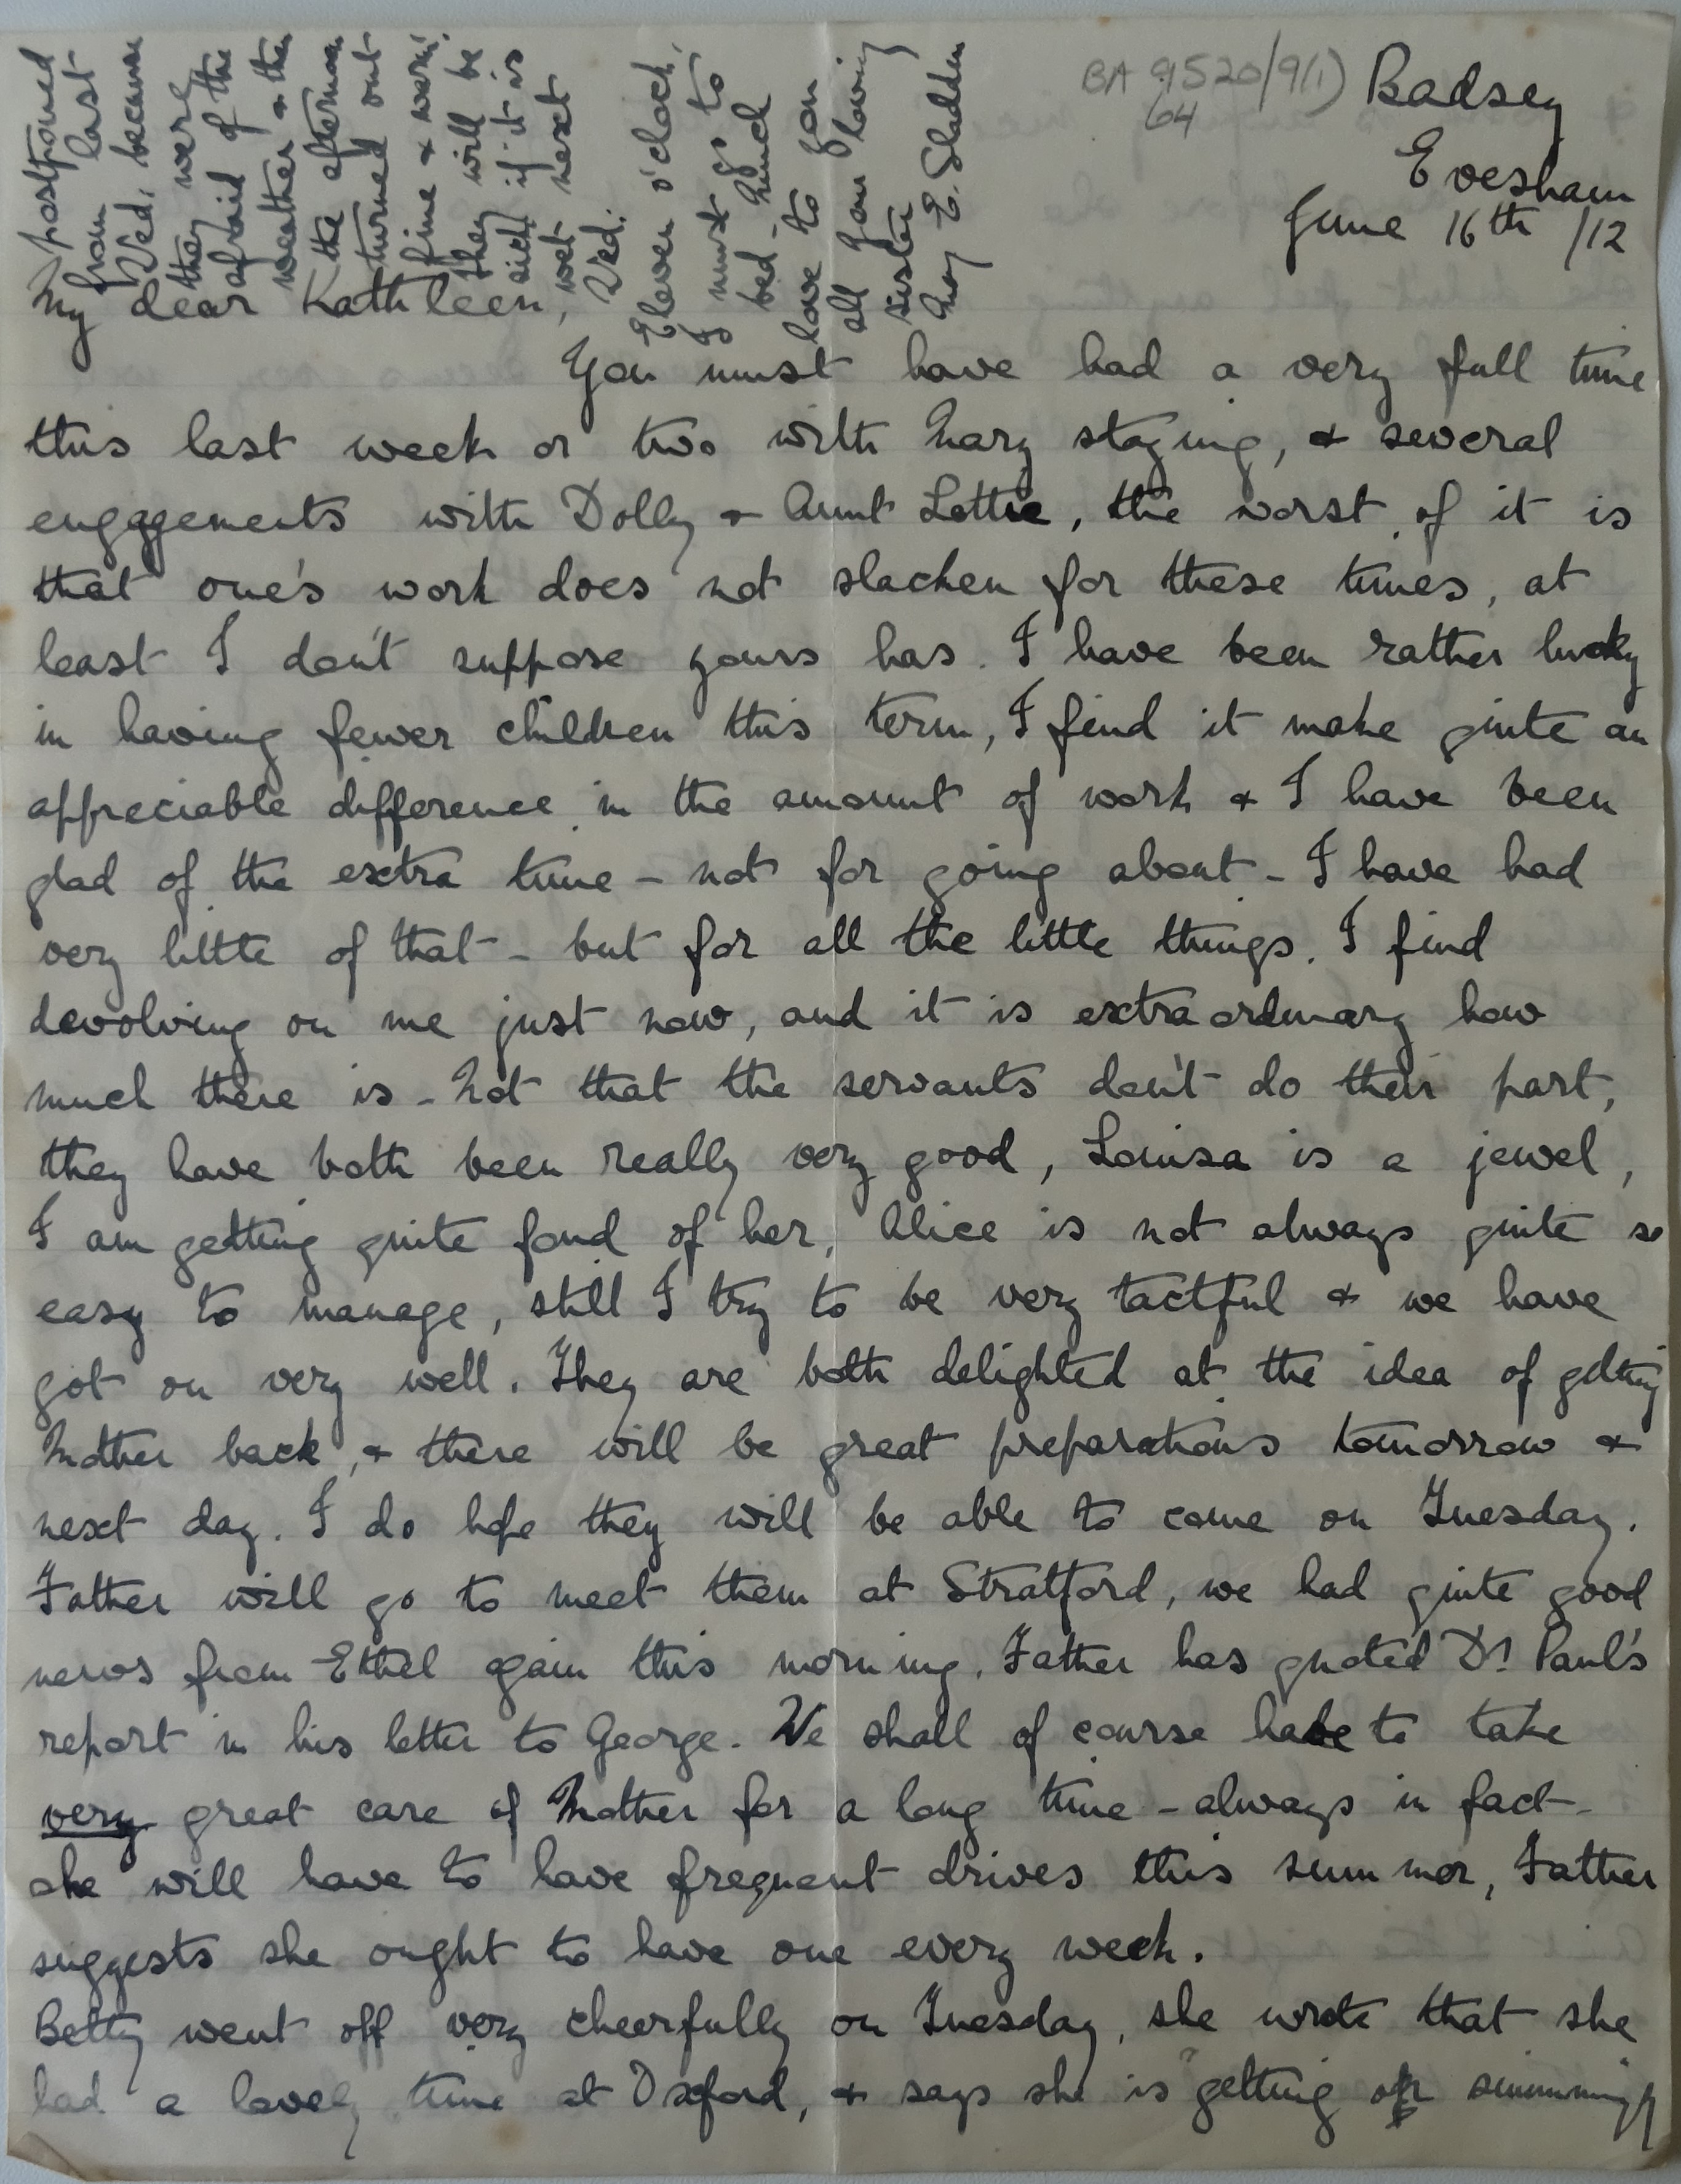 BA 9520/9(1)
64
Badsey
Evesham
June 16th /12
My dear Kathleen,
You must have had a very full time
this last week or two with Mary staying, & several
engagements with Dolly & Aunt Lottie, the worst of it is
that one's work does not slacken for these times, at
least I don't suppose yours has. I have been rather lucky
in having fewer children this term, I find it make quite an
appreciable difference in the amount of work & I have been
glad of the extra time - not for going about - I have had
very little of that - but for all the little things. I find
devolving on me just now, and it is extraordinary how
much there is - Not that the servants don't do their part,
they have both been really very good, Louisa is a jewel,
I am getting quite fond of her, Alice is not always quite so
easy to manage, still I try to be very tactful & we have
got on very well. They are both delighted at the idea of getting
Mother back, & there will be great preparations tomorrow &
next day. I do hope they will be able to come on Tuesday.
Father will go to meet them at Stratford, we had quite good
news from Ethel again this morning. Father has quoted Dr Paul's
report in his letter to George. We shall of course have to take
very great care of Mother for a long time - always in fact -
she will have to have frequent drives this summer, Father
suggests she ought to have one every week.
Betty went off very cheerfully on Tuesday, she wrote that she
had a lovely time at Oxford, & says she is "getting
postponed
from last
Wed. because
they were
afraid of the
weather & then
the afternoon
turned out
fine & warm.
They will be
sick if it is
wet next
Wed.
Eleven o'clock,
so must go to
bed - Much
love to you
all Your loving
sister
Amy E. Sladden